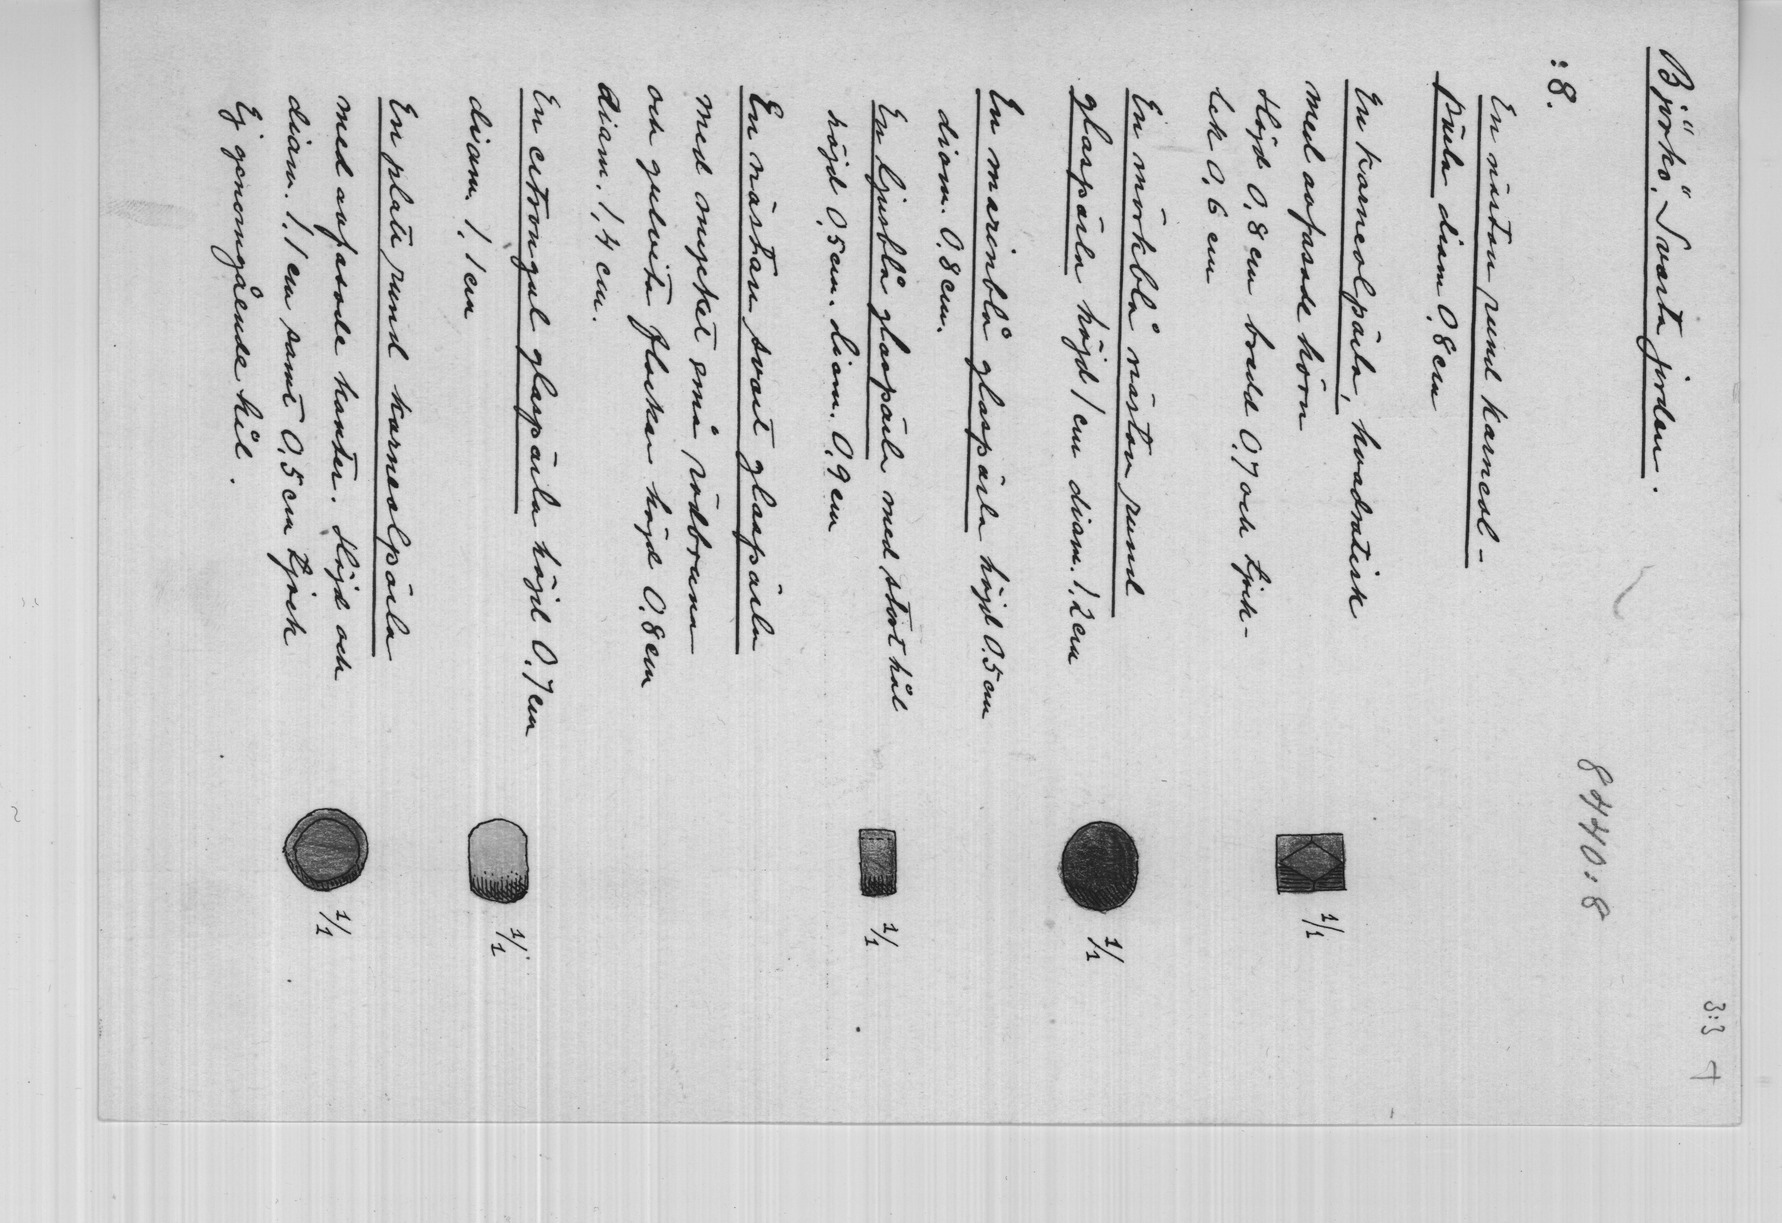 3:3
Björkö. "Svarta jorden".
8440:8
:8.
En nästan rund karneol-
pärla diam 0,8 cm
En karneolpärla, kvadratisk
med avfasade hörn
Höjd 0,8 cm bredd 0,7 och tjock-
lek 0,6 cm
1/1
En mörkblå nästan rund
glaspärla höjd 1 cm diam. 1,2 cm
1/1
En marinblå glaspärla höjd 0.5 cm
diam. 0,8 cm.
En ljusblå glaspärla med stort hål
höjd 0,5 cm. diam. 0,9 cm
1/1
En nästan svart glaspärla
med mycket små rödbruna
och gulvita fläckar höjd 0,8 cm
diam. 1,4 cm.
En citrongul glaspärla höjd 0,7 cm
diam. 1,1 cm
1/1
En platt rund karneolpärla
med avfasade kanter. Höjd och
diam. 1,1 cm samt 0,5 cm tjock
Ej genomgående hål.
1/1